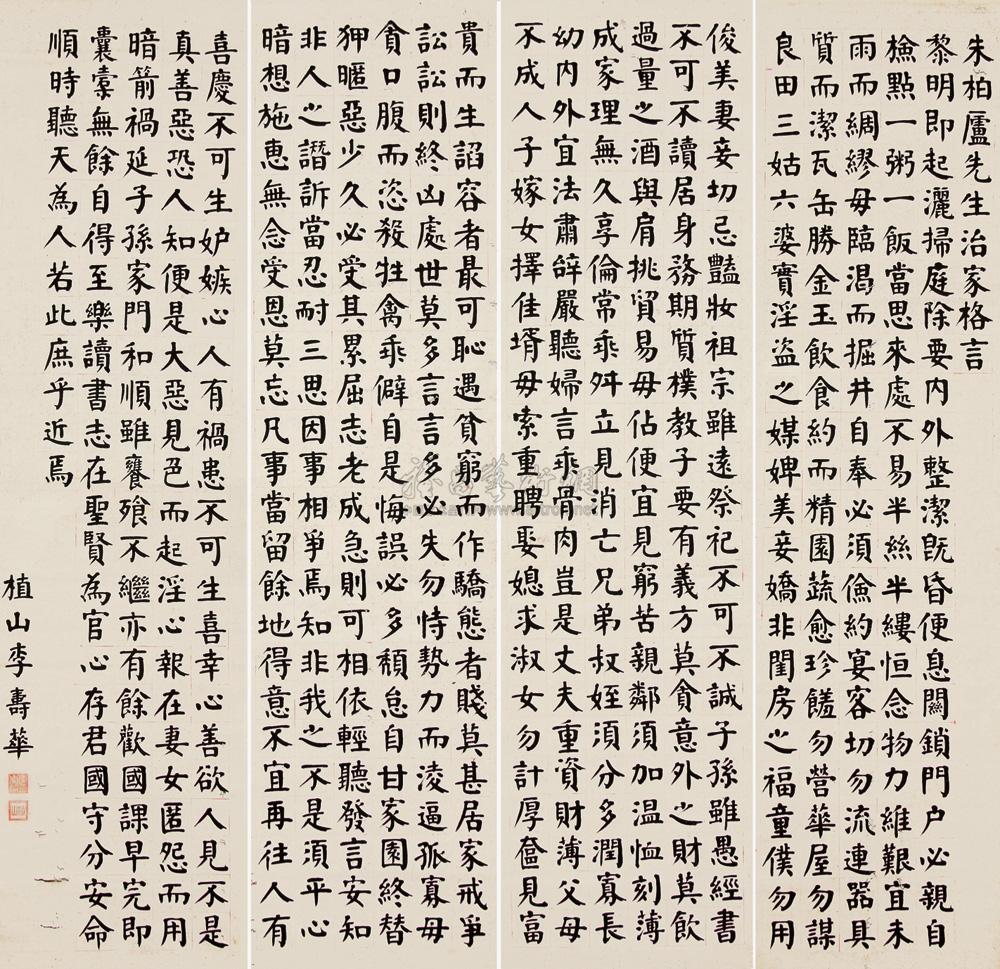 朱柏廬先生治家格言
黎明即起灑掃庭除要內外整潔旣昏便息關鎖門户必親自
檢點一粥一飯當思來處不易半絲半縷恒念物力維艱宜未
雨而綢繆毋臨渴而掘井自奉必須儉約宴客切勿流連器具
質而潔瓦缶勝金玉飲食約而精園蔬愈珍饈勿營華屋勿謀
良田三姑六婆實淫盜之媒婢美妾嬌非閨房之福童僕勿用
俊美妻妾切忌豔妝祖宗雖遠祭祀不可不誠子孫雖愚經書
不可不讀居身務期質樸教子要有義方莫貪意外之財莫飲
過量之酒與肩挑貿易毋佔便宜見窮苦親鄰須加温恤刻薄
成家理無久享倫常乖舛立見消亡兄弟叔姪須分多潤寡長
幼內外宜法肅辭嚴聽婦言乖骨肉豈是丈夫重資財薄父母
不成人子嫁女擇佳壻毋索重聘娶媳求淑女勿計厚奩見富
貴而生諂容者最可恥遇貧窮而作驕態者賤莫甚居家戒爭
訟訟則終凶處世莫多言言多必失勿恃勢力而淩逼孤寡毋
貪口腹而恣殺牲禽乖僻自是悔誤必多頹怠自甘家園終替
狎暱惡少久必受其累屈志老成急則可相依輕聽發言安知
非人之譖訴當忍耐三思因事相爭焉知非我之不是須平心
暗想施惠無念受恩莫忘凡事當留餘地得意不宜再往人有
喜慶不可生妒嫉心人有禍患不可生喜幸心善欲人見不是
真善惡恐人知便是大惡見色而起淫心報在妻女匿怨而用
暗箭禍延子孫家門和順雖饔飧不繼亦有餘歡國課早完即
囊橐無餘自得至樂讀書志在聖賢為官心存君國守分安命
順時聽天為人若此庶乎近焉
植山李壽華